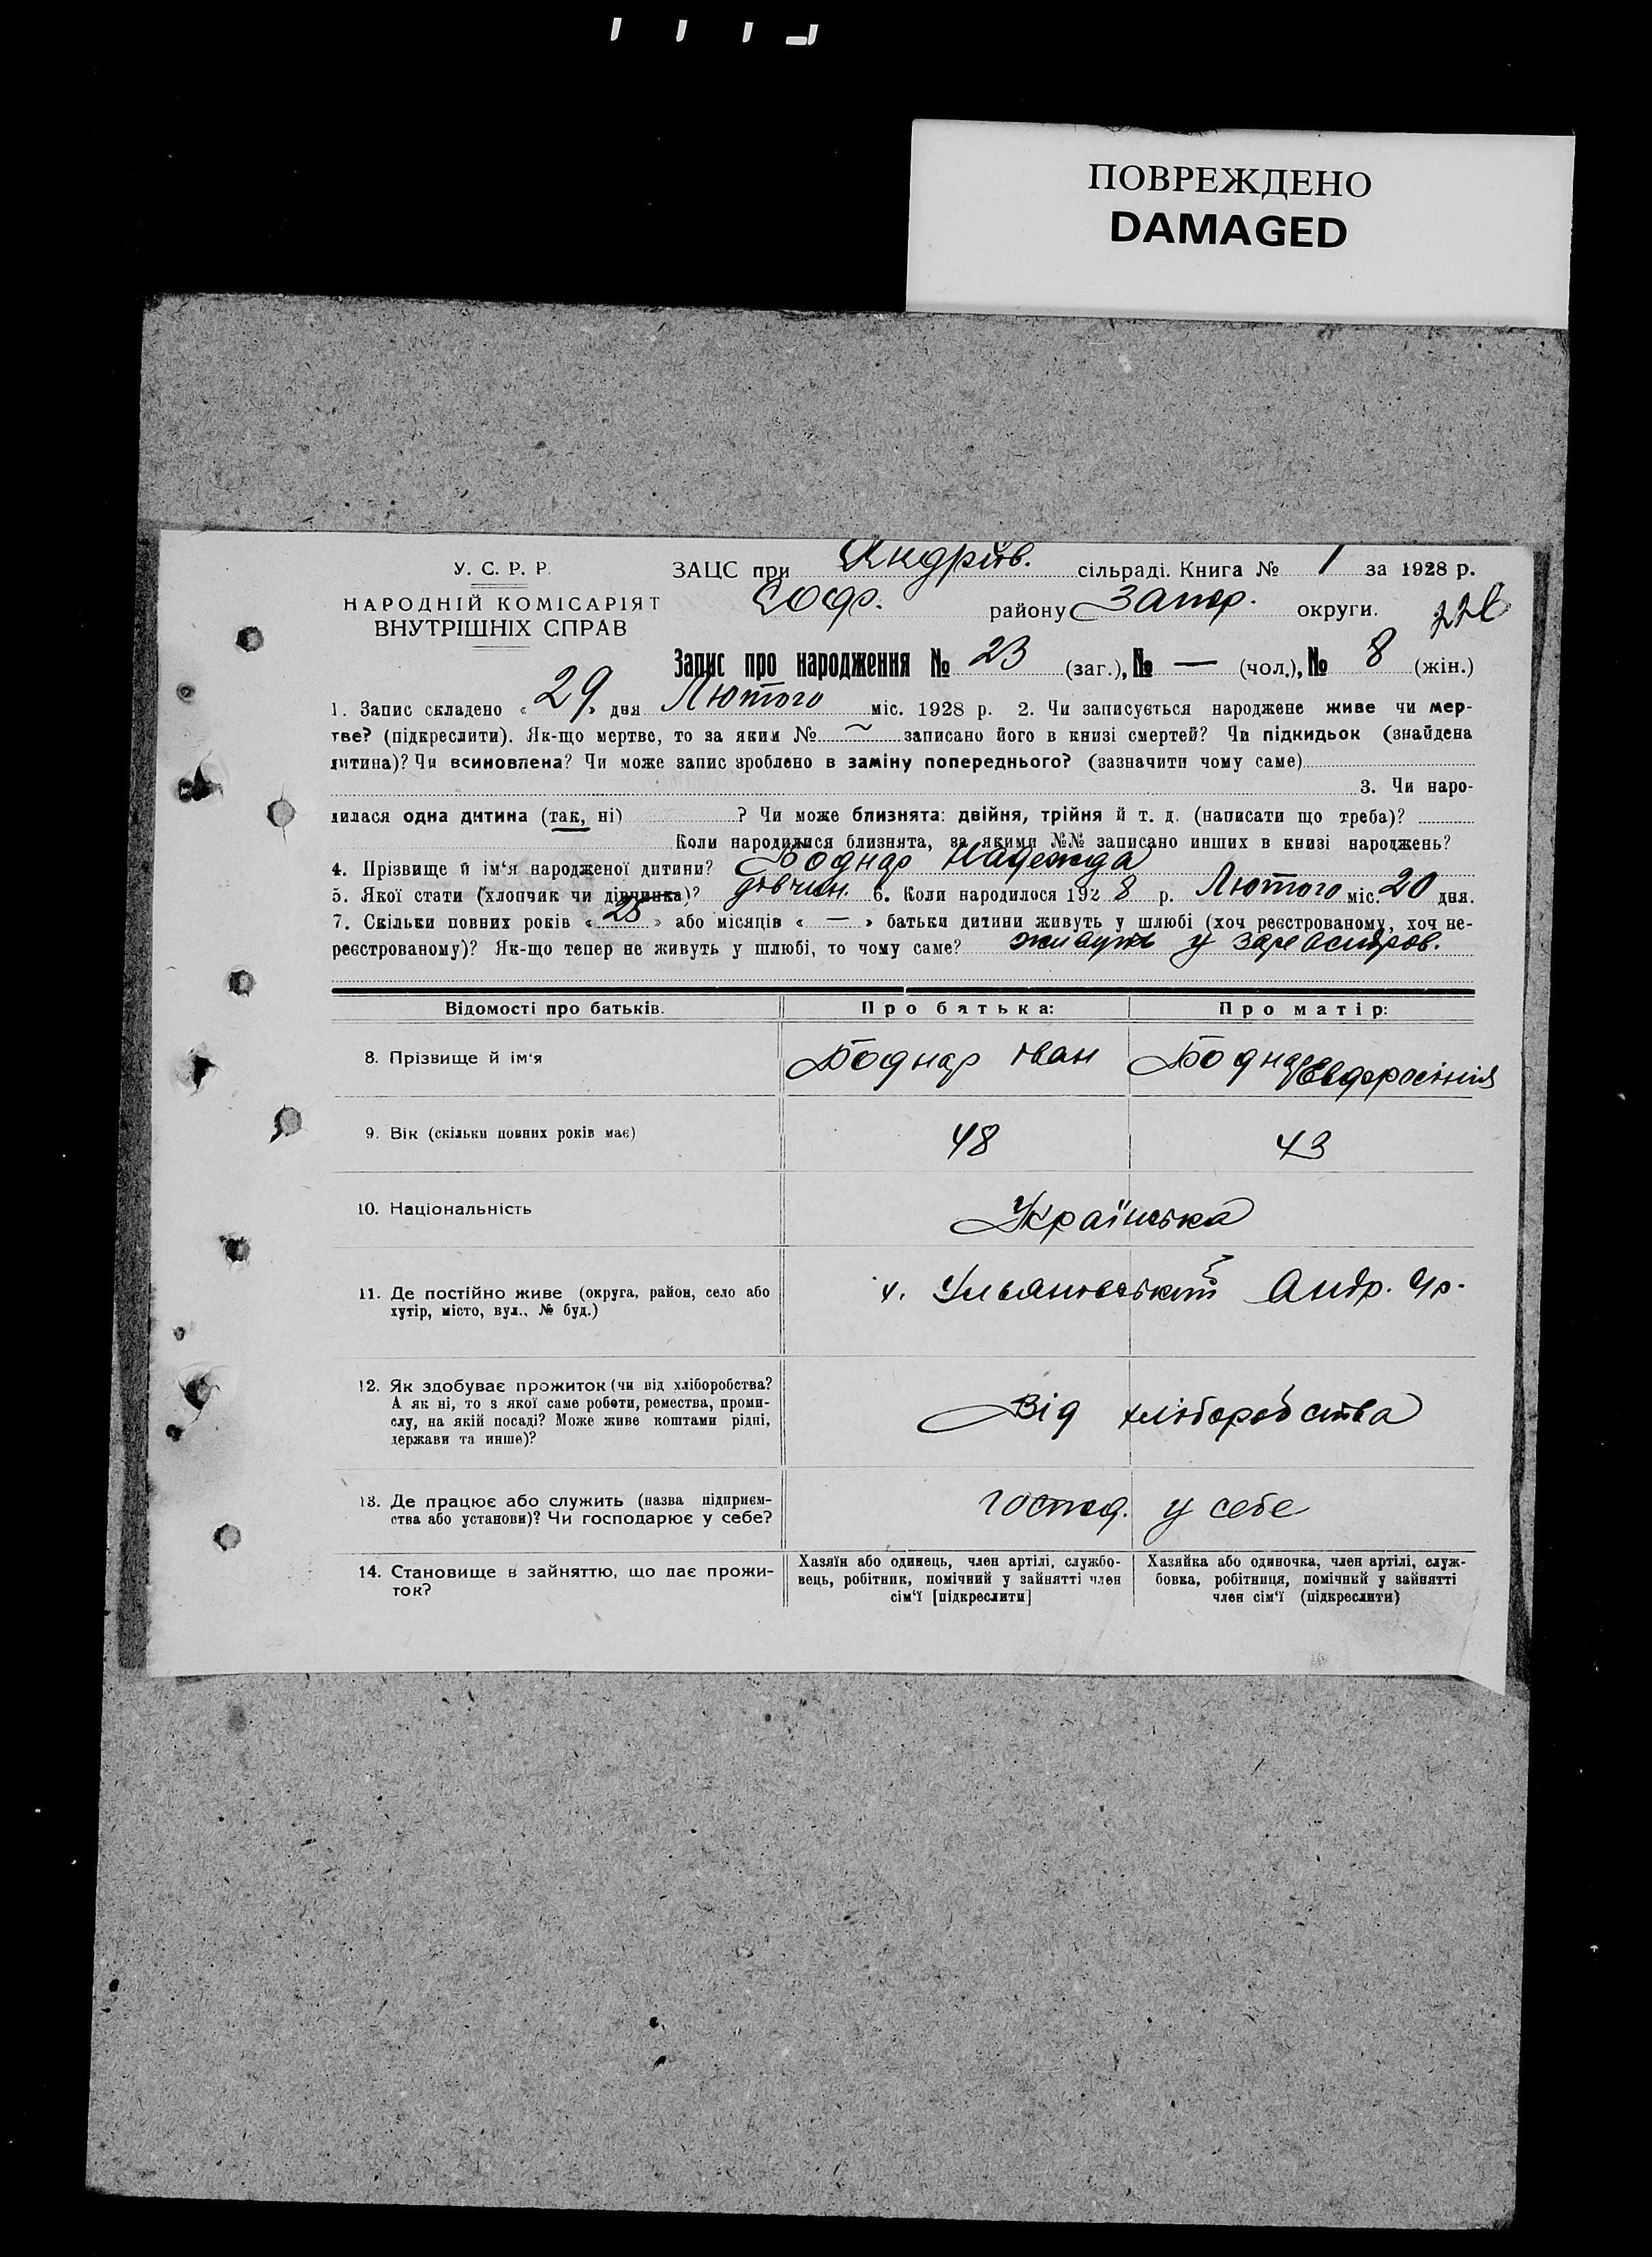 ПОВРЕЖДЕНО
DAMAGED
У. С. Р. Р.
НАРОДНІЙ КОМІСАРІЯТ
ВНУТРІШНІХ СПРАВ
ЗАЦС при Андріїв. сільраді. Книга № 1 за 1928 р.
Софр. району Запор. округи.
Запис про народження № 23 (заг.), № — (чол.), № 8 (жін.)
1. Запис складено « 29 » дня Лютого міс. 1928 р. 2. Чи записується народжене живе чи мер-
тве? (підкреслити). Як-що мертве, то за яким № ~ записано його в книзі смертей? Чи підкидьок (знайдена
дитина)? Чи всиновлена? Чи може запис зроблено в заміну попереднього? (зазначити чому саме)
3. Чи наро-
дилася одна дитина (так, ні) ? Чи може близнята: двійня, трійня й т. д. (написати що треба)?
Коли народилися близнята, за якими №№ записано инших в книзі народжень?
4. Прізвище й ім‘я народженої дитини? Боднар Надежда
5. Якої стати (хлопчик чи дівчинка)? дівчин. 6. Коли народилося 1928 р. Лютого міс. 20 дня.
7. Скільки повних років « 25 » або місяців « — » батьки дитини живуть у шлюбі (хоч реєстрованому, хоч не-
реєстрованому)? Як-що тепер не живуть у шлюбі, то чому саме? живуть у
Відомості про батьків. Про батька: Про матір:
8. Прізвище й ім‘я Боднар Іван Боднар Євдоросінія
9. Вік (скільки повних років має) 48 43
10. Національність Українська
11. Де постійно живе (округа, район, село або
хутір, місто, вул., № буд.) Ульяновський Андр.
12. Як здобуває прожиток (чи від хліборобства?
А як ні, то з якої саме роботи, ремества, проми-
слу, на якій посаді? Може живе коштами рідні,
держави та инше)? Від хліборобства
13. Де працює або служить (назва підприєм-
ства або установи)? Чи господарює у себе? господ. у себе
14. Становище в зайняттю, що дає прожи-
ток?
Хазяїн або одинець, член артілі, службо-
вець, робітник, помічний у зайнятті член
сім‘ї [підкреслити]
Хазяйка або одиночка, член артілі, служ-
бовка, робітниця, помічний у зайнятті
член сім‘ї (підкреслити)